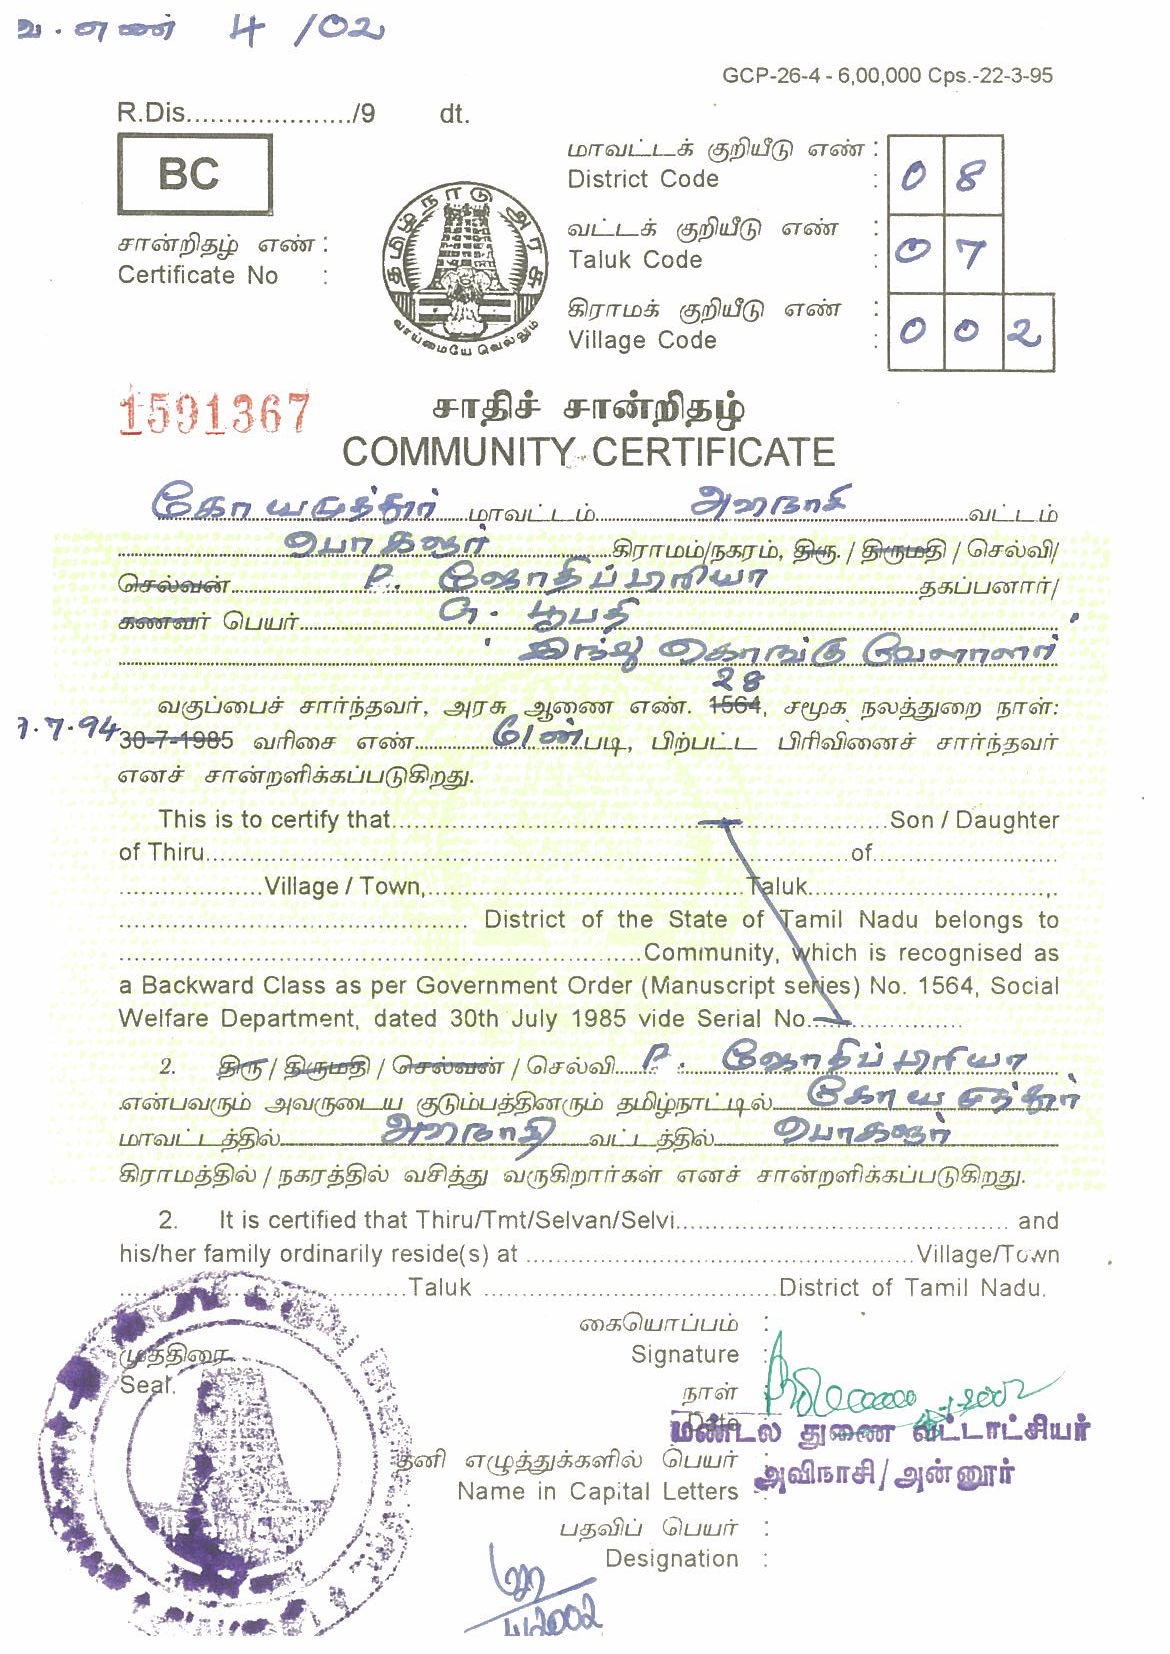 வ. எண் 4/02
GCP-26-4 - 6,00,000 Cps.-22-3-95
R.Dis...................../9 dt.
BC
சான்றிதழ் எண் :
Certificate No :
தமிழ்நாடு அரசு
வாய்மையே வெல்லும்
மாவட்டக் குறியீடு எண் :
District Code : 0 8
வட்டக் குறியீடு எண் :
Taluk Code : 0 7
கிராமக் குறியீடு எண் :
Village Code : 0 0 2
1591367
சாதிச் சான்றிதழ்
COMMUNITY CERTIFICATE
கோயமுத்தூர் மாவட்டம் அவிநாசி வட்டம்
பொகளூர் கிராமம்/நகரம், திரு. / திருமதி / செல்வி/
செல்வன் P. ஜோதிப்பிரியா தகப்பனார்/
கணவர் பெயர் G. பூபதி
இந்து கொங்கு வேளாளர்
28
வகுப்பைச் சார்ந்தவர், அரசு ஆணை எண். 1564, சமூக நலத்துறை நாள்:
7.7.94 30-7-1985 வரிசை எண் படி, பிற்பட்ட பிரிவினைச் சார்ந்தவர்
எனச் சான்றளிக்கப்படுகிறது.
This is to certify that.................... Son / Daughter
of Thiru....................of....................
....................Village / Town,....................Taluk....................,.
.................... District of the State of Tamil Nadu belongs to
....................Community, which is recognised as
a Backward Class as per Government Order (Manuscript series) No. 1564, Social
Welfare Department, dated 30th July 1985 vide Serial No....................
2. திரு / திருமதி / செல்வன் / செல்வி P. ஜோதிப்பிரியா
என்பவரும் அவருடைய குடும்பத்தினரும் தமிழ்நாட்டில் கோயமுத்தூர்
மாவட்டத்தில் அவிநாசி வட்டத்தில் பொகளூர்
கிராமத்தில் / நகரத்தில் வசித்து வருகிறார்கள் எனச் சான்றளிக்கப்படுகிறது.
2. It is certified that Thiru/Tmt/Selvan/Selvi.................... and
his/her family ordinarily reside(s) at ....................Village/Town
....................Taluk ....................District of Tamil Nadu.
கையொப்பம் :
முத்திரை
Signature :
Seal.
நாள்
Date
மண்டல துணை வட்டாட்சியர்
தனி எழுத்துக்களில் பெயர்
அவிநாசி/அன்னூர்
Name in Capital Letters :
பதவிப் பெயர் :
Designation :